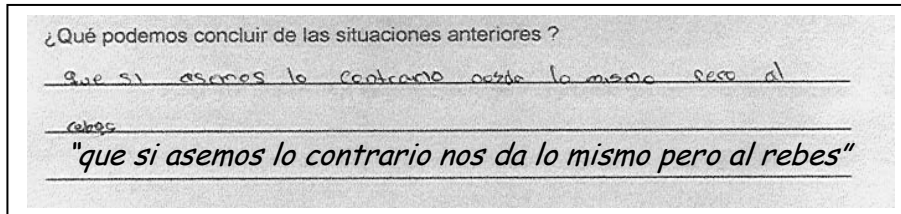 ¿Qué podemos concluir de las situaciones anteriores ?
que si asemos lo contrario nosda lo mismo pero al
rebes
"que si asemos lo contrario nos da lo mismo pero al rebes"